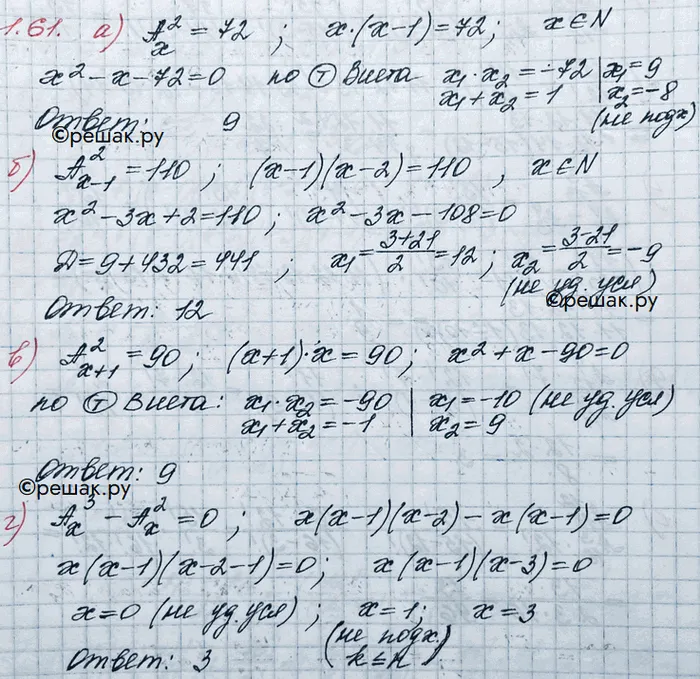 1.61. а) A²ₓ = 72 ; x·(x-1)=72; x∈N
x²-x-72=0 по Ⓣ Виета x₁·x₂=-72 | x₁=9
x₁+x₂=1 | x₂=-8
(не подх)
Ответ: 9
©решак.ру
б) A²ₓ₋₁ = 110 ; (x-1)(x-2)=110 , x∈N
x²-3x+2=110; x²-3x-108=0
Д=9+432=441 ; x₁=(3+21)/2=12; x₂=(3-21)/2=-9
(не уд. усл)
©решак.ру
Ответ: 12
в) A²ₓ₊₁ = 90; (x+1)·x=90; x²+x-90=0
по Ⓣ Виета: x₁·x₂=-90 | x₁=-10 (не уд. усл)
x₁+x₂=-1 | x₂=9
Ответ: 9
©решак.ру
г) A³ₓ - A²ₓ = 0; x(x-1)(x-2)-x(x-1)=0
x(x-1)(x-2-1)=0; x(x-1)(x-3)=0
x=0 (не уд. усл) ; x=1; x=3
(не подх.
k≤n)
Ответ: 3